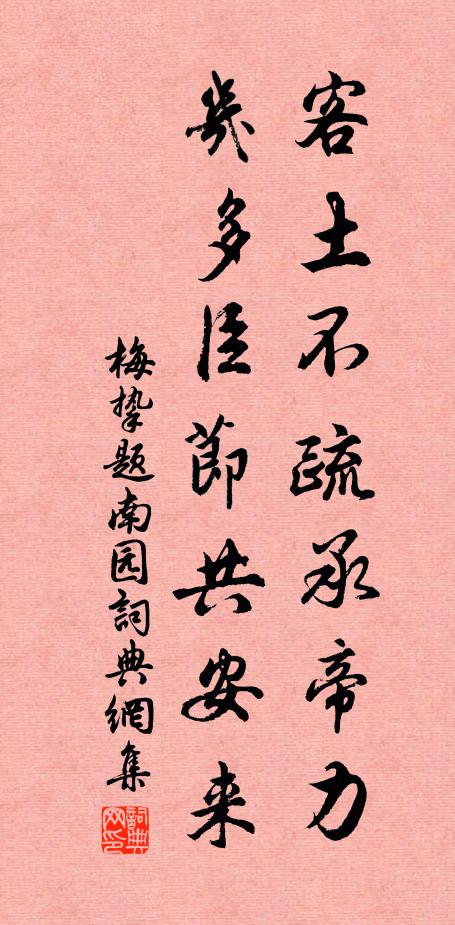 客土不疏承帝力
几多臣節共安来
梅挚题南园詞典網集
詞典网印